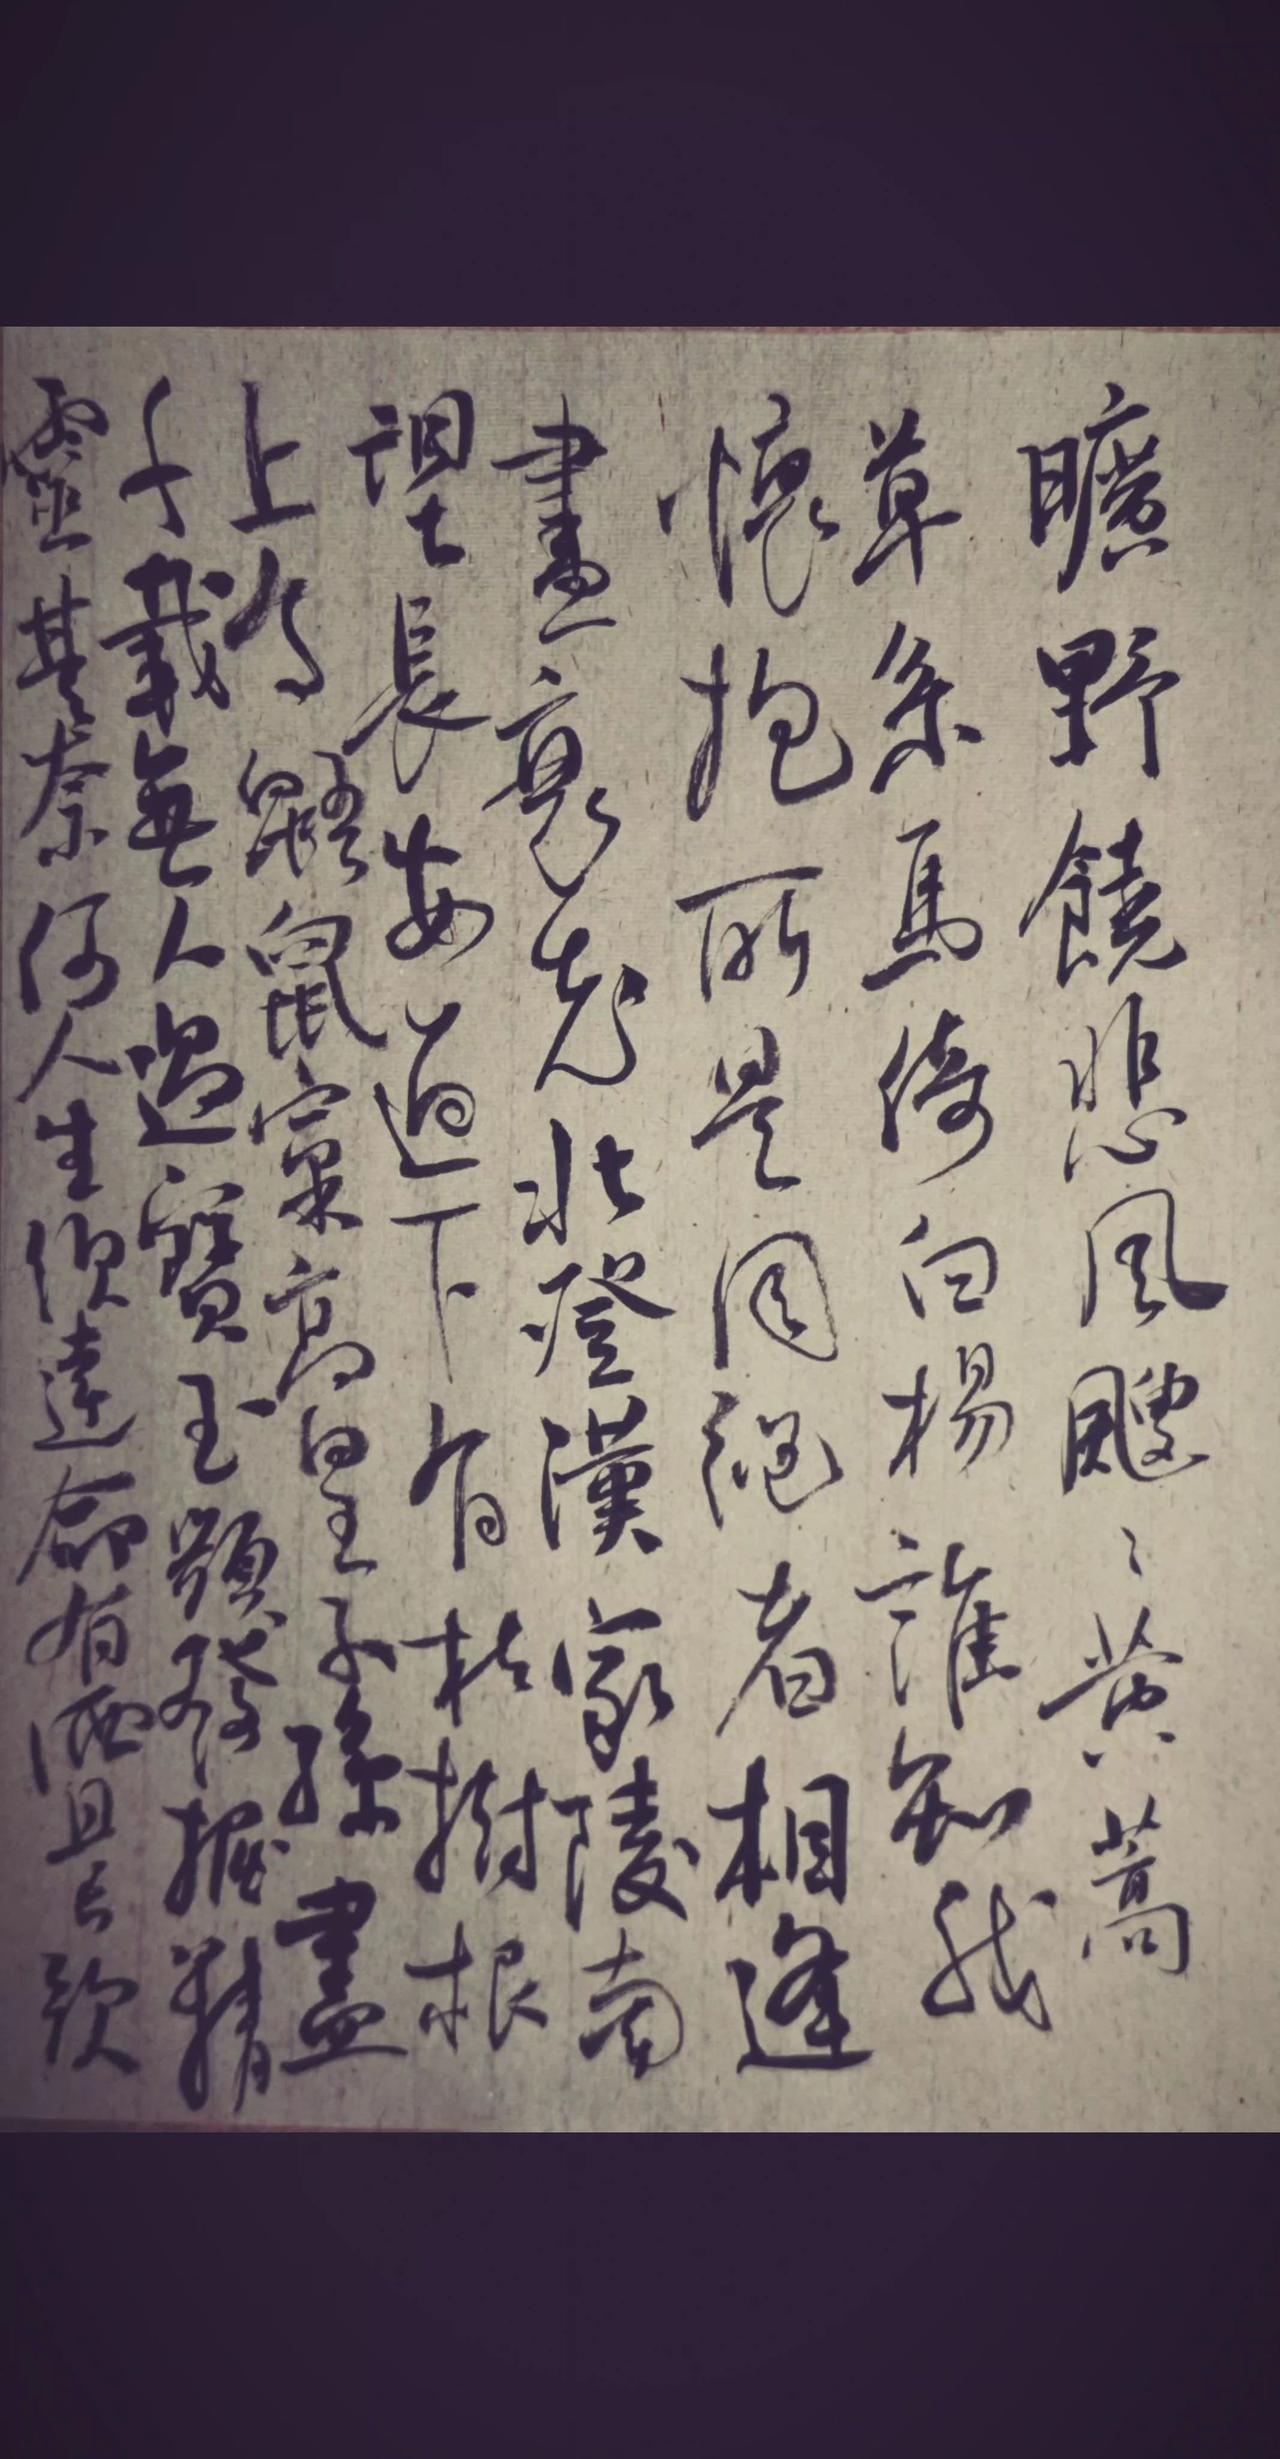 曠野饒悲風颼〻黃蒿
草系馬倚白楊誰知我
懷抱所是同袍者相逢
盡衰老北登漢家陵南
望長安道下有枯樹根
上有鼯鼠窠高皇子孫盡
千載無人過寶玉頻發掘精
靈其奈何人生須達命有酒且長歌